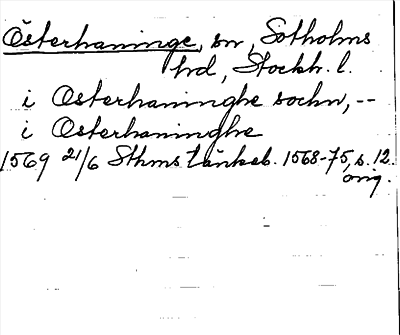 Österhaninge, sn, Sotholms
hd, Stockh. l.
i Osterhaninghe sochn, --
i Osterhaninghe
1569 21/6 Sthms tänkeb. 1568-75, s. 12.
orig.